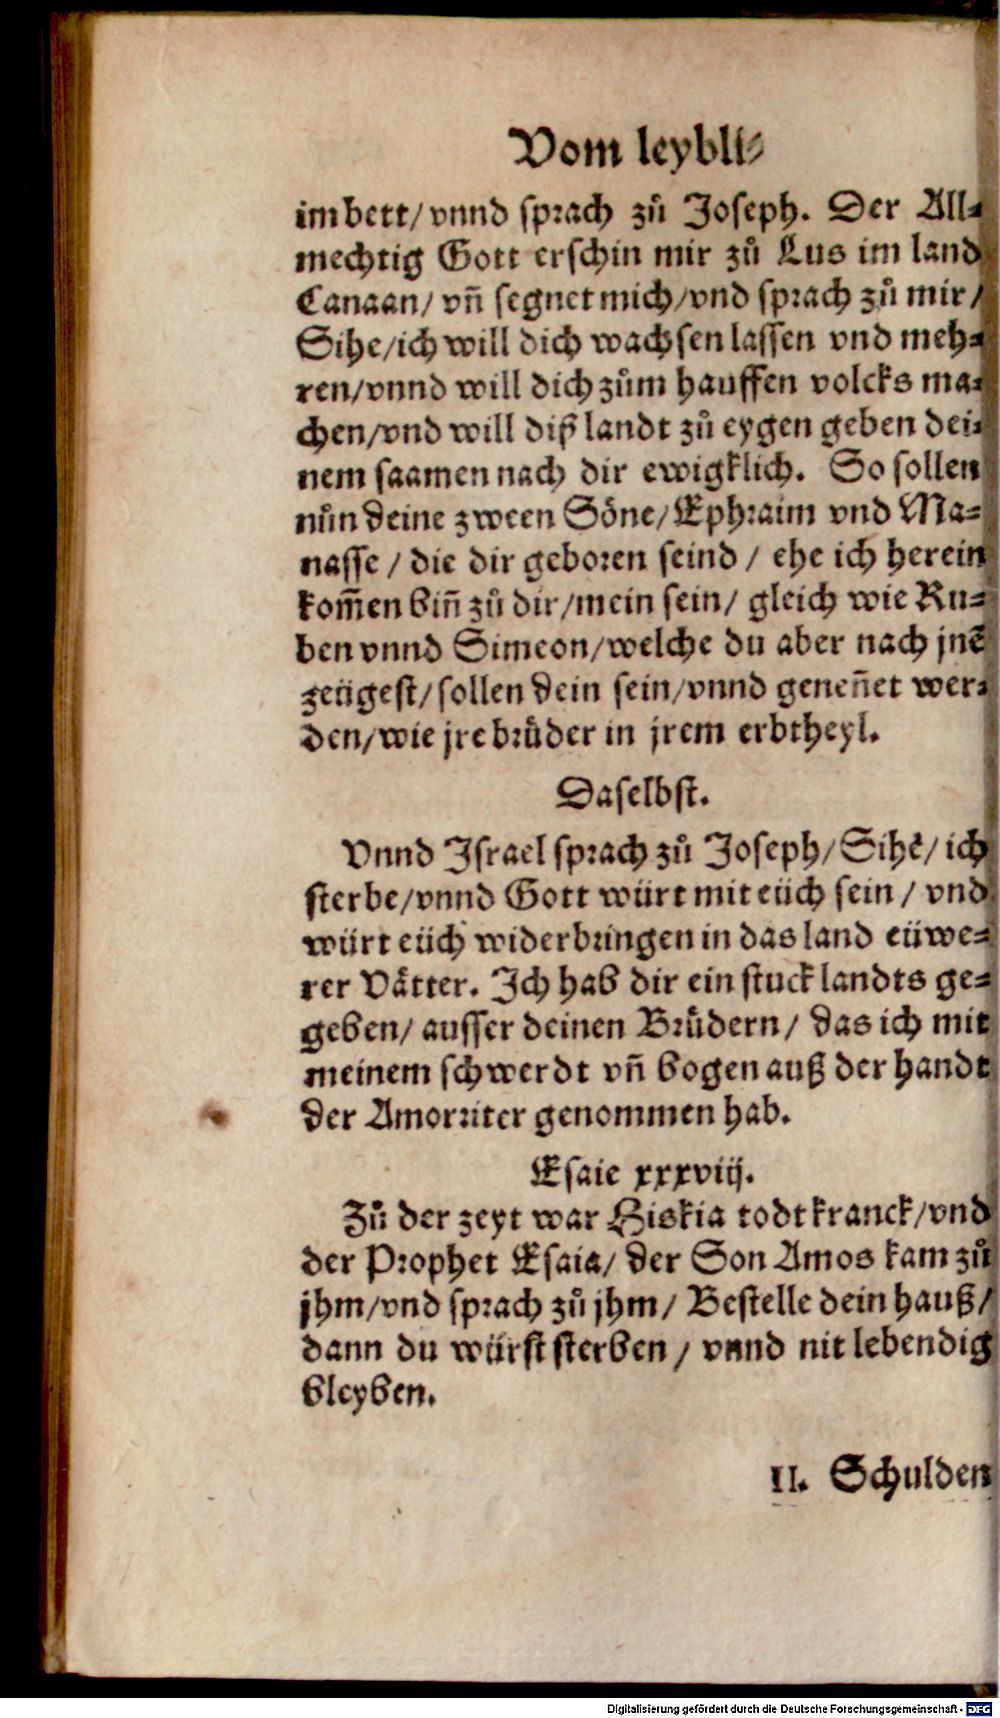 Vom leybli⸗
im bett/ vnnd sprach zů Joseph. Der All⸗
mechtig Gott erschin mir zů Lus im land
Canaan/ vñ segnet mich/ vnd sprach zů mir/
Sihe/ ich will dich wachsen lassen vnd meh⸗
ren/ vnnd will dich zům hauffen volcks ma⸗
chen/ vnd will diß landt zů eygen geben dei⸗
nem saamen nach dir ewigklich. So sollen
nůn deine zween Söne/ Ephraim vnd Ma⸗
nasse/ die dir geboren seind/ ehe ich herein
kom̃en biñ zů dir/ mein sein/ gleich wie Ru⸗
ben vnnd Simeon/ welche du aber nach jnē
zeügest/ sollen dein sein/ vnnd geneñet wer⸗
den/ wie jre brůder in jrem erbtheyl.
Daselbst.
Vnnd Israel sprach zů Joseph/ Sihe/ ich
sterbe/ vnnd Gott würt mit eüch sein/ vnd
würt eüch widerbringen in das land eüwe⸗
rer Vätter. Ich hab dir ein stuck landts ge⸗
geben/ ausser deinen Brůdern/ das ich mit
meinem schwerdt vñ bogen auß der handt
der Amorriter genommen hab.
Esaie xxxviij.
Zů der zeyt war Hiskia todtkranck/ vnd
der Prophet Esaia/ der Son Amos kam zů
jhm/ vnd sprach zů jhm/ Bestelle dein hauß/
dann du würst sterben/ vnnd nit lebendig
bleyben.
II. Schulden
Digitalisierung gefördert durch die Deutsche Forschungsgemeinschaft - DFG